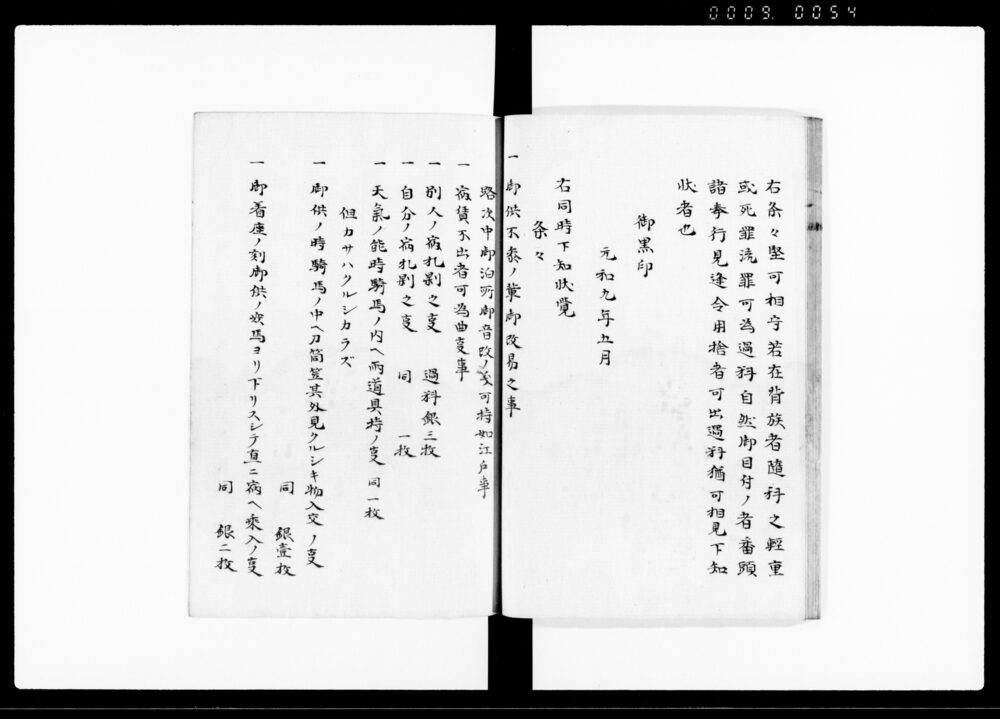 0009. 0054
右条々堅可相守若在背族者随科之軽重
或死罪流罪可為過料自然御目付ノ者番頭
諸奉行見逢令用捨者可出過料猶可相見下知
状者也
御黒印
元和九年五月
右同時下知状覚
条々
一 御供不参ノ輩御改易之事
路次中御泊所御音改ノ 可持如江戸事
一 宿賃不出者可為曲事事
一 別人ノ宿札剥之事 過料銀三枚
一 自分ノ宿札剥之事 同 一枚
一 天気ノ能時騎馬ノ内ヘ雨道具持ノ事 同一枚
但カサハクルシカラズ
一 御供ノ時騎馬ノ中ヘ刀筒笠其外見クルシキ物入交ノ事
同 銀壹枚
一 御着座ノ刻御供ノ 馬ヨリ下リスシテ直ニ宿ヘ乗入ノ事
同 銀二枚